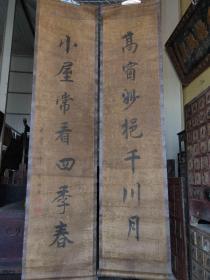 高窗妙挹千川月
小屋常看四季春